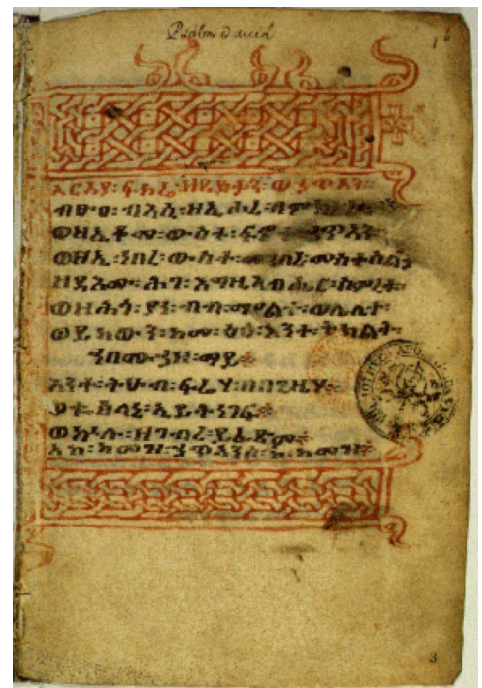 ፍካሬ፡ ዘጻድቃን፡ ወኃጥኣን፡
ብፁዕ፡ ብእሲ፡ ዘኢሖረ፡ በምክረ፡
ወዘኢቆመ፡ ውስተ፡ ፍኖተ፡ ኃጥኣን፡
ወዘኢነበረ፡ ውስተ፡ መንበረ፡ መስተሳልቃን፡
ዘዳእሙ፡ ሕገ፡ እግዚአብሔር፡ ስምረቱ፡
ወዘሕጎ፡ ያነብብ፡ መዓልተ፡ ወሌሊተ፡
ወይከውን፡ ከመ፡ ዕፅ፡ እንተ፡ ትክልት፡
ኀበ፡ ሙኃዘ፡ ማይ።
እንተ፡ ትሁብ፡ ፍሬሃ፡ በበጊዜሃ፡
ወቈጽላኒ፡ ኢይትነገፍ።
ወኵሎ፡ ዘገብረ፡ ይፌጽም።
አኮ፡ ከመዝ፡ ኃጥኣንሰ፡ አኮ፡ ከመዝ።
3